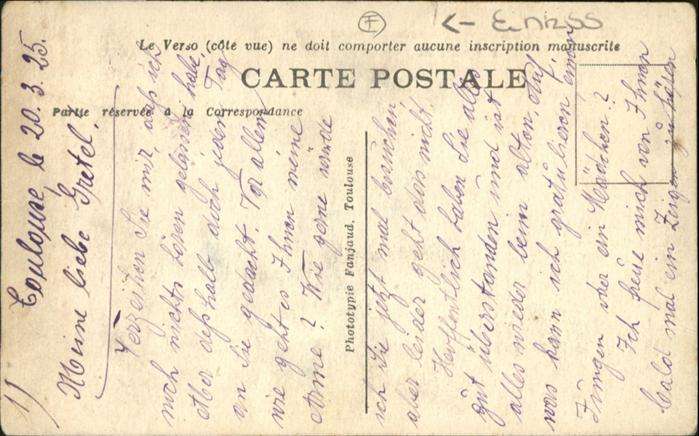 ← EN1255
F
Le Verso (côté vue) ne doit comporter aucune inscription manuscrite
CARTE POSTALE
Partie réservée à la Correspondance
Phototypie Fanjaud, Toulouse
1)
Toulouse le 20.3.25.
Meine liebe Gretel!
Verzeihen Sie mir, daß ich
noch nichts hören gelassen habe
Aber deßhalb doch jeden Tag
an Sie gedacht. Vor allem
wie geht es Ihnen meine
Arme? Wie gerne würde
ich Sie jetzt mal besuchen
aber leider geht das nicht.
Hoffentlich haben Sie alles
gut überstanden und ist
alles wieder beim alten. Auf
was kann ich gratulieren einen
Jungen oder ein Mädchen?
Ich freue mich von Ihnen
bald mal ein